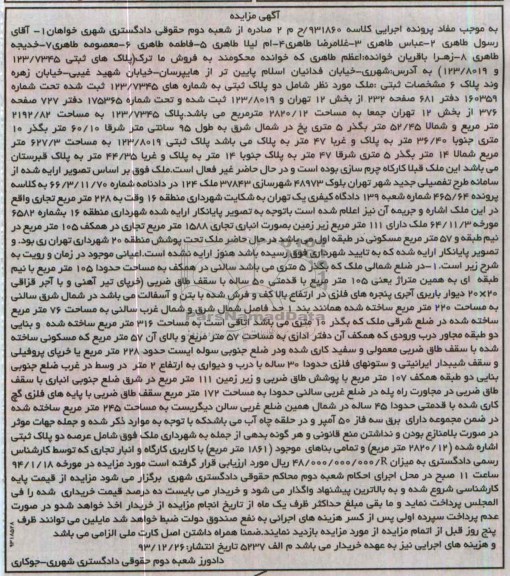 آگهی مزایده
به موجب مفاد پرونده اجرایی کلاسه ۹۳۱۸۶۰/ح م ۲ صادره از شعبه دوم حقوقی دادگستری شهری خواهان۱- آقای
رسول طاهری ۲-عباس طاهری ۳-غلامرضا طاهری۴-ام لیلا طاهری ۵-فاطمه طاهری ۶-معصومه طاهری۷-خدیجه
طاهری ۸-زهرا باقریان خوانده:اعظم طاهری که خوانده محکومند به فروش ما ترک(پلاک های ثبتی ۱۲۳/۷۳۴۵
و ۱۲۳/۸۰۱۹) به آدرس:شهرری-خیابان فدائیان اسلام پایین تر از هایپرسان-خیابان شهید غیبی-خیابان زهره
وند پلاک ۶ مشخصات ثبتی :ملک مورد نظر شامل دو پلاک ثبتی به شماره های ۱۲۳/۷۳۴۵ ثبت شده تحت شماره
۱۶۰۳۵۹ دفتر ۶۸۱ صفحه ۲۳۲ از بخش ۱۲ تهران و ۱۲۳/۸۰۱۹ ثبت شده و تحت شماره ۱۷۵۳۶۵ دفتر ۷۲۷ صفحه
۳۷۶ از بخش ۱۲ تهران جمعا به مساحت ۲۸۲۰/۱۲ مترمربع می باشد.پلاک ۱۲۳/۷۳۴۵ به مساحت ۲۱۹۲/۸۲
متر مربع و شمالا ۵۲/۴۵ متر بگذر ۵ متری پخ در شمال شرق به طول ۹۵ سانتی متر شرقا ۶۰/۱۰ متر بگذر ۱۰
متری جنوبا ۳۶/۴۰ متر به پلاک و غربا ۴۷ متر به پلاک می باشد پلاک ثبتی ۱۲۳/۸۰۱۹ به مساحت ۶۲۷/۳ متر
مربع شمالا ۱۴ متر بگذر ۵ متری شرقا ۴۷ متر به پلاک جنوبا ۱۴ متر به پلاک و غربا ۴۴/۳۵ متر به پلاک قبرستان
می باشد این ملک قبلا کارگاه چرم سازی بوده است و در حال حاضر غیر فعال است.ملک فوق بر اساس تصویر ارایه شده از
سامانه طرح تفصیلی جدید شهر تهران بلوک ۴۸۹۷۳ شهرسازی ۳۷۸۴۳ ملک ۱۲۴ در دادنامه شماره ۶۶/۳/۱۱/۷۰ به کلاسه
پرونده ۴۶۵/۶۴ شماره شعبه ۱۳۹ دادگاه کیفری یک تهران به شکایت شهرداری منطقه ۱۶ وقت به ۲۲۸ متر مربع تجاری واقع
در این ملک اشاره و جریمه آن نیز اعلام شده است باتوجه به تصویر پایانکار ارایه شده شهرداری منطقه ۱۶ بشماره ۶۵۸۲
مورخه ۶۴/۱۱/۳ ملک دارای ۱۱۱ متر مربع زیر زمین بصورت انباری تجاری ۱۵۸۸ متر مربع تجاری در همکف ۱۰۵ متر مربع در
نیم طبقه و ۵۷ متر مربع مسکونی در طبقه اول می باشد در حال حاضر ملک تحت پوشش منطقه ۲۰ شهرداری تهران ری بود. و
تصویر پایانکار ارایه شده که به تایید شهرداری فوق رسیده باشد هنوز ارایه نشده است.اعیانی موجود در زمان و رویت به
شرح زیر است.۱-در ضلع شمالی ملک که بگذر ۵ متری می باشد سالنی در همکف به مساحت حدودا ۱۰۵ متر مربع با نیم
طبقه ای به همین متراژ یعنی ۱۰۵ متر مربع با قدمتی ۵۰ ساله با سقف طاق ضربی (خرپای تیر آهنی و با آجر قزاقی
۲۰×۲۰ دیوار باربری آجری پنجره های فلزی در ارتفاع بالا کف و فرش شده با بتن و آسفالت می باشد در شمال شرق سالنی
به مساحت ۲۲۰ متر مربع ساخته شده همانند بند ۱ حد فاصل شمال شرق و شمال غرب سالنی به مساحت ۷۶ متر مربع
ساخته شده در ضلع شرقی ملک که بگذر ۱۰ متری می باشد اتاقی است به مساحت ۳۱۶ متر مربع ساخته شده و بنایی
دو طبقه مجاور درب ورودی که همکف آن دفتر اداری به مساحت ۵۷ متر مربع و بالای آن ۵۷ متر مربع که مسکونی ساخته
شده با سقف طاق ضربی معمولی و سفید کاری شده ودر ضلع جنوبی سوله ایست حدود ۲۲۸ متر مربع با خرپای پروفیلی
و سقف شیبدار ایرانیتی و ستونهای فلزی حدودا ۳۰ ساله با درب و دیواری به ارتفاع ۲ متر در وسط در غرب ضلع جنوبی
بنایی دو طبقه همکف ۱۰۷ متر مربع با پوشش طاق ضربی و زیر زمین ۱۱۱ متر مربع در شرق ضلع جنوبی انباری با سقف
طاق ضربی در مجاورت راه پله در ضلع غربی سالنی حدودا به مساحت ۱۷۲ متر مربع سقف طاق ضربی با پایه های فلزی گچ
کاری شده با قدمتی حدودا ۴۵ ساله در شمال همین ضلع غربی سالن دیگریست به مساحت ۲۴۵ متر مربع ساخته شده
در ضمن مجموعه دارای برق سه فاز ۵۰ آمپر و در حلقه چاه آب می باشدکه با توجه به موارد ذکر شده و جمله جهات موثر
در صورت بلامنازع بودن و نداشتن منع قانونی و هر گونه بدهی از جمله به شهرداری ملک فوق شامل عرصه دو پلاک ثبتی
اشاره شده (۲۸۲۰/۱۲ متر مربع) و تمامی بناهای موجود (۱۸۶۱ متر مربع) با کاربری کارگاه و انبار تجاری که توسط کارشناس
رسمی دادگستری به میزان ۴۸/۰۰۰/۰۰۰/۰۰۰/R ریال مورد ارزیابی قرار گرفته است مورد مزایده در مورخه ۹۴/۱/۱۸
ساعت ۱۱ صبح در محل اجرای احکام شعبه دوم محاکم حقوقی دادگستری شهری برگزار می شود مزایده از قیمت پایه
کارشناسی شروع شده و به بالاترین پیشنهاد واگذار می شود و خریدار می بایست ده درصد قیمت خریداری شده را فی
المجلس پرداخت نماید و ما بقی مبلغ حداکثر ظرف یک ماه از تاریخ انجام مزایده از خریدار اخذ خواهد شدو در صورت
عدم پرداخت سپرده اولی پس از کسر هزینه های اجرائی به نفع صندوق دولت ضبط خواهد شد مایلین می توانند ظرف
پنج روز قبل از اتمام مزایده از مورد مزایده بازدید نمایند.ضمنا همراه داشتن اصل کارت ملی الزامی می باشد
و هزینه های اجرایی نیز به عهده خریدار می باشد م الف ۵۲۳۷ تاریخ انتشار:۹۳/۱۲/۲۶
دادورز شعبه دوم حقوقی دادگستری شهرری-جوکاری